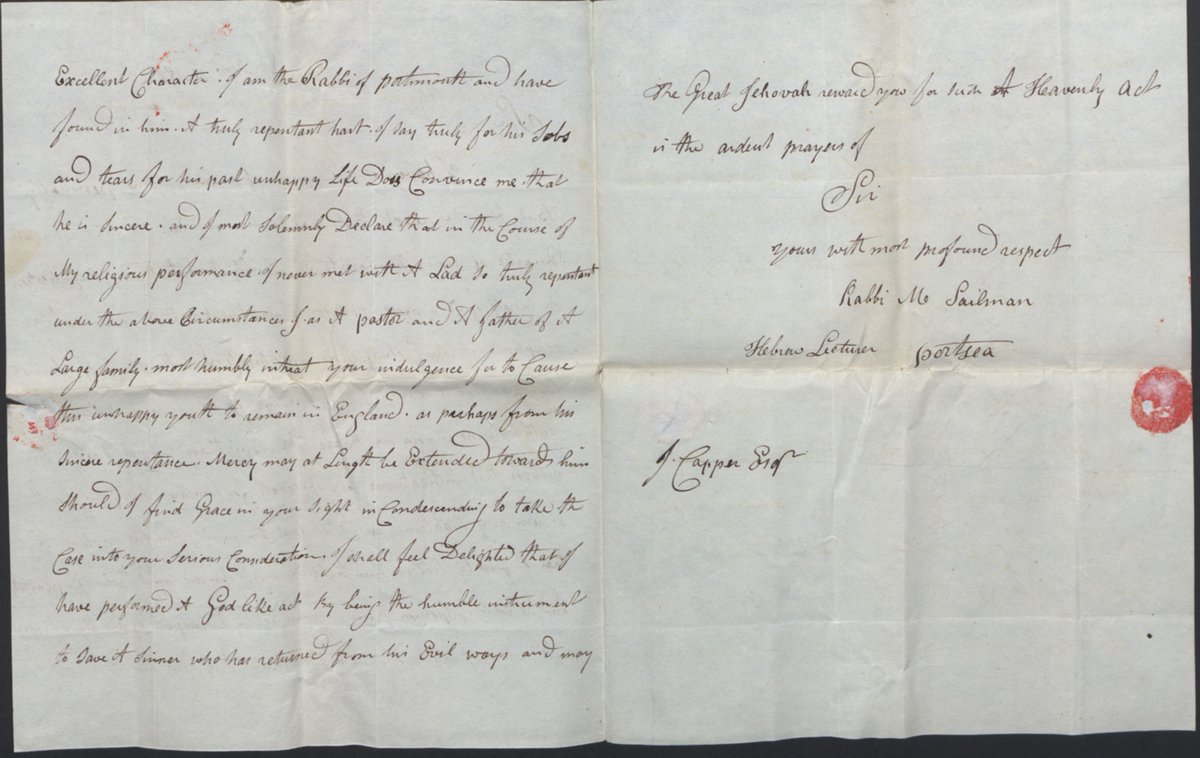 Excellent Character. I am the Rabbi of portsmouth and have
found in him. A truly repentant hart. I say truly for his Sobs
and tears for his past unhappy Life Does Convince me. that
he is Sincere. and I most Solemnly Declare that in the Course of
My religious performance. I never met with A Lad So truly repentant
under the above Circumstances I. as A pastor and A father of A
Large family. most humbly intreat your indulgence for to Cause
this unhappy youth to remain in England. as perhaps from his
Sincere repentance. Mercy may at Length be Extended towards him
Should I find Grace in your Sight in Condescending to take the
Case into your Serious Consideration I shall feel Delighted that I
have performed A God like act by being the humble instrument
to Save A Sinner who has returned from his Evil ways and may
The Great Jehovah reward you for Such A Heavenly Act
is the ardent prayers of
Sir
yours with most profound respect
Rabbi M Sailman
Hebrew Lecturer portsea
J. Capper Esqr